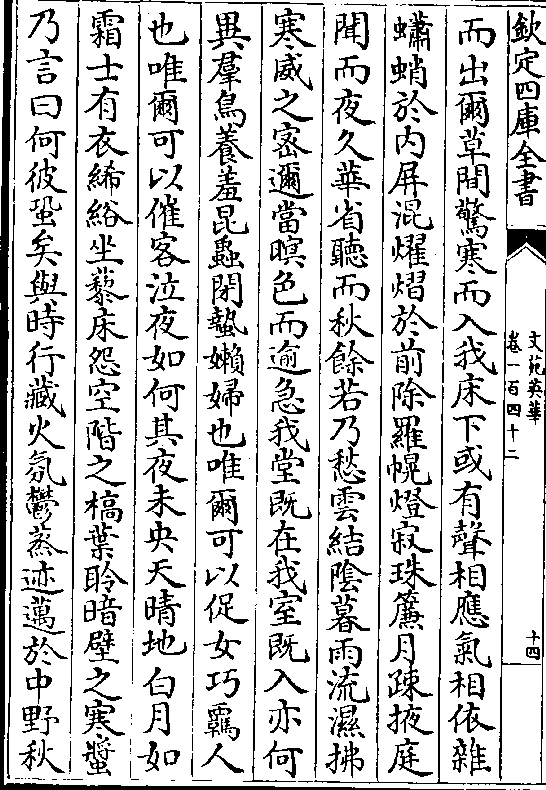 欽定四庫全書
文苑英華
卷一百四十二
十四
而出爾草間驚寒而入我床下或有聲相應氣相依雜
蠨蛸於内屏混熠熠於前除羅幌燈寂珠簾月疎掖庭
聞而夜久華省聽而秋餘若乃愁雲結陰暮雨流濕拂
寒威之密邇當暝色而逾急我堂既在我室既入亦何
異羣鳥養羞昆蟲閉蟄嬾婦也唯爾可以促女巧羈人
也唯爾可以催客泣夜如何其夜未央天晴地白月如
霜士有衣絺綌坐藜床怨空階之槁葉聆暗壁之寒螿
乃言曰何彼蛩矣與時行藏火氛鬱蒸迹邁於中野秋